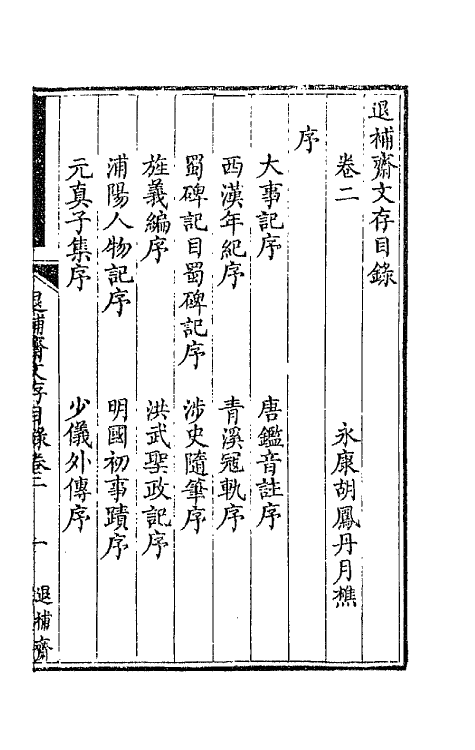 退補齋文存目錄
卷二 永康胡鳳丹月樵
序
大事記序 唐鑑音註序
西漢年紀序 青溪寇軌序
蜀碑記目蜀碑記序 涉史隨筆序
旌義編序 洪武聖政記序
浦陽人物記序 明國初事蹟序
元真子集序 少儀外傳序
退補齋文存目錄卷二 一 退補齋